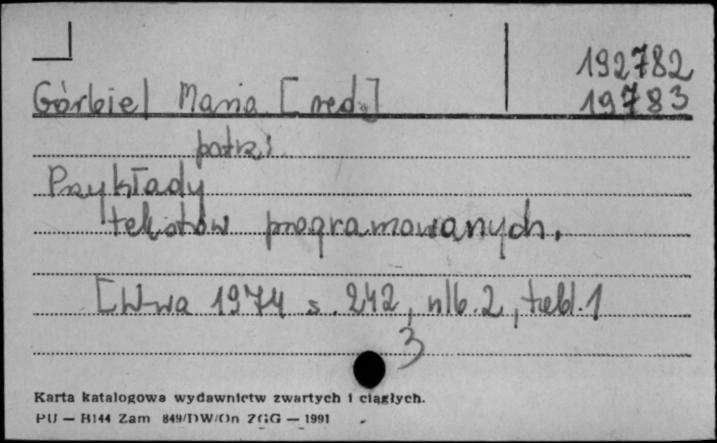 192782
19783
Górbiel Maria [red.]
patrz:
Przykłady
tekstów programowanych.
[W-wa 1974 s. 242, nlb. 2, tabl. 1
3
Karta katalogowa wydawnictw zwartych i ciągłych.
PU — B144 Zam 849/DW/On ZGG — 1991